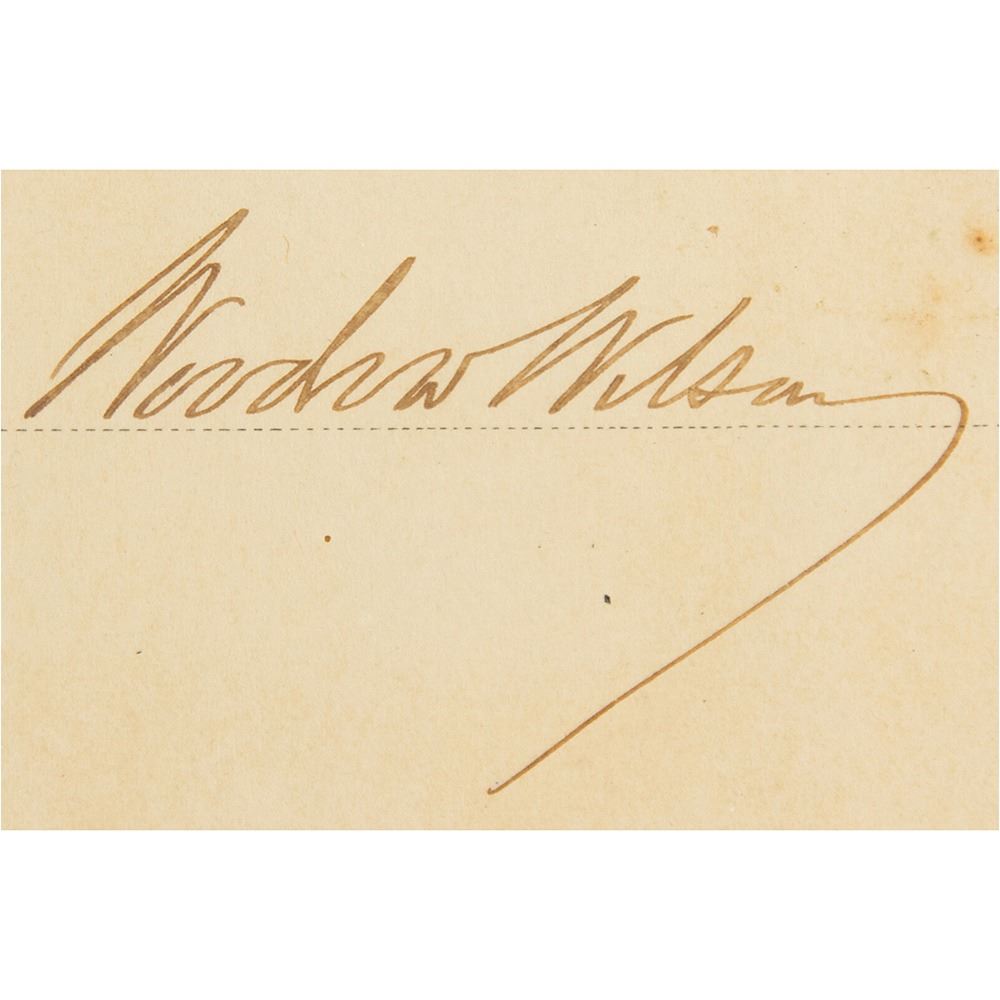 Woodrow Wilson